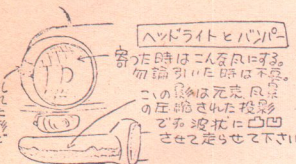 ヘッドライトとバンパー
寄った時はこんな風にする。
勿論引いた時は不要。
この影は元売、風景
の圧縮された投影
です。波状に凸凹
させて走らせて下さい